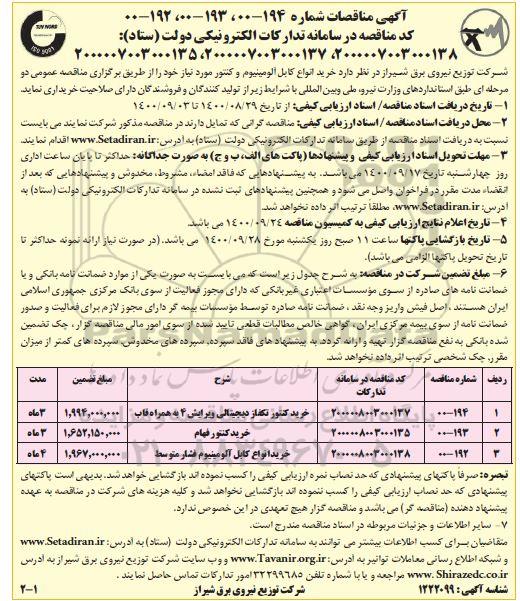 TUV NORD
ISO 9001
آگهی مناقصات شماره ۱۹۴-۰۰، ۱۹۳-۰۰، ۱۹۲-۰۰
کد مناقصه در سامانه تدارکات الکترونیکی دولت (ستاد):
۲۰۰۰۰۰۷۰۰۳۰۰۰۱۳۸، ۲۰۰۰۰۰۷۰۰۳۰۰۰۱۳۷، ۲۰۰۰۰۰۷۰۰۳۰۰۰۱۳۵
شرکت توزیع نیروی برق شیراز در نظر دارد خرید انواع کابل آلومینیوم و کنتور مورد نیاز خود را از طریق برگزاری مناقصه عمومی دو
مرحله ای طبق استانداردهای وزارت نیرو، ملی و بین المللی با شرایط زیر از تولید کنندگان و فروشندگان دارای صلاحیت خریداری نماید.
۱- تاریخ دریافت اسناد مناقصه/ اسناد ارزیابی کیفی: از تاریخ ۱۴۰۰/۰۸/۲۹ تا ۱۴۰۰/۰۹/۰۳
۲- محل دریافت اسناد مناقصه / اسناد ارزیابی کیفی: مناقصه گرانی که تمایل دارند در مناقصه مذکور شرکت نمایند می بایست
نسبت به دریافت اسناد مناقصه از طریق سامانه تدارکات الکترونیکی دولت (ستاد) به آدرس: www.Setadiran.ir اقدام نمایند.
۳- مهلت تحویل اسناد ارزیابی کیفی و پیشنهادها (پاکت های الف، ب و ج) به صورت جداگانه: حداکثر تا پایان ساعت اداری
روز چهارشنبه تاریخ ۱۴۰۰/۰۹/۱۷ می باشد. به پیشنهادهایی که فاقد امضاء، مشروط، مخدوش و پیشنهادهایی که بعد از
انقضاء مدت مقرر در فراخوان واصل می شود و همچنین پیشنهادهای ثبت نشده در سامانه تدارکات الکترونیکی دولت (ستاد) به
آدرس: www.Setadiran.ir، مطلقا ترتیب اثر داده نخواهد شد.
۴- تاریخ اعلام نتایج ارزیابی کیفی به کمیسیون مناقصه ۱۴۰۰/۰۹/۲۴ می باشد.
۵- تاریخ بازگشایی پاکتها ساعت ۱۱ صبح روز یکشنبه مورخ ۱۴۰۰/۰۹/۲۸ می باشد. (در صورت نیاز ارائه نمونه حداکثر تا
تاریخ تحویل پاکتها الزامی می باشد).
۶- مبلغ تضمین شرکت در مناقصه: به شرح جدول زیر است که می بایست به صورت یکی از موارد ضمانت نامه بانکی و یا
ضمانت نامه های صادره از سوی مؤسسات اعتباری غیربانکی که دارای مجوز فعالیت از سوی بانک مرکزی جمهوری اسلامی
ایران هستند، اصل فیش واریز وجه نقد، ضمانت نامه صادره توسط مؤسسات بیمه گر دارای مجوز لازم برای فعالیت و صدور
ضمانت نامه از سوی بیمه مرکزی ایران، گواهی خالص مطالبات قطعی تایید شده از سوی امور مالی مناقصه گزار، چک تضمین
شده بانکی به نفع مناقصه گزار تهیه و ارائه گردد. به پیشنهاد های فاقد سپرده، سپرده های مخدوش، سپرده های کمتر از میزان
مقرر، چک شخصی ترتیب اثر داده نخواهد شد.
ردیف شماره مناقصه کد مناقصه در سامانه تدارکات شرح مبلغ تضمین مدت
۱ ۱۹۴-۰۰ ۲۰۰۰۰۰۸۰۰۳۰۰۰۱۳۷ خرید کنتور تکفاز دیجیتالی ویرایش ۴ به همراه قاب ۱,۹۹۴,۰۰۰,۰۰۰ ۳ ماه
۲ ۱۹۳-۰۰ ۲۰۰۰۰۰۸۰۰۳۰۰۰۱۳۵ خرید کنتور فهام ۱,۶۵۲,۱۵۰,۰۰۰ ۳ ماه
۳ ۱۹۲-۰۰ ۲۰۰۰۰۰۸۰۰۳۰۰۰۱۳۸ خرید انواع کابل آلومینیوم فشار متوسط ۱,۹۶۷,۰۰۰,۰۰۰ ۴ ماه
تبصره: صرفاً پاکتهای پیشنهادی که حد نصاب نمره ارزیابی کیفی را کسب نموده اند بازگشایی خواهد شد. بدیهی است پاکتهای
پیشنهادی که حد نصاب ارزیابی کیفی را کسب ننموده اند بازگشایی نخواهد شد و کلیه هزینه های شرکت در مناقصه به عهده
پیشنهاد دهنده (مناقصه گر) می باشد و مناقصه گزار هیچ تعهدی در این خصوص ندارد.
۷- سایر اطلاعات و جزئیات مربوطه در اسناد مناقصه مندرج است.
متقاضیان برای کسب اطلاعات بیشتر می توانند به سامانه تدارکات الکترونیکی دولت (ستاد) به آدرس: www.Setadiran.ir
و شبکه اطلاع رسانی معاملات توانیر به آدرس: www.Tavanir.org.ir و وب سایت شرکت توزیع نیروی برق شیراز به آدرس
www. Shirazedc.co.ir مراجعه و یا با شماره تلفن ۳۲۲۹۹۶۸۵ امور تدارکات تماس حاصل نمایند.
شناسه آگهی: ۱۲۲۲۰۹۹ شرکت توزیع نیروی برق شیراز ۲-۱